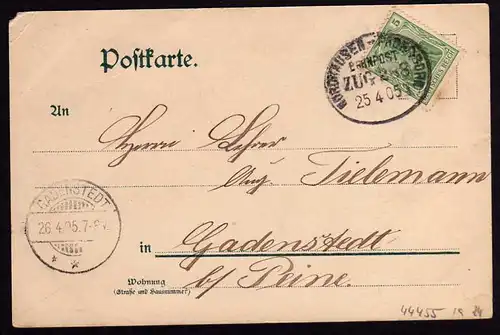 Postkarte.
NORDHAUSEN
BAHNPOST
ZUG
25 4 05
5
An
Herrn Lehrer
Aug. Tielemann
GADENSTEDT
26.4.05.7-8V.
* *
in Gadenstedt
b/ Peine.
Wohnung
(Straße und Hausnummer)
44455